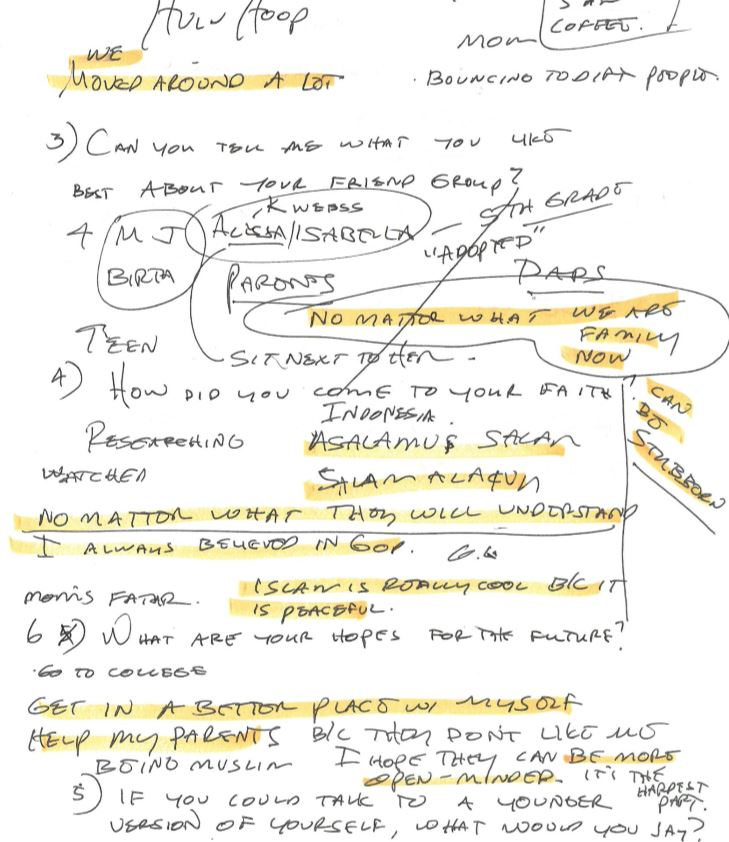 HULU HOOP
COFFEE.
MOM
WE
MOVED AROUND A LOT
· BOUNCING TO DIFF PEOPLE.
3) CAN YOU TELL ME WHAT YOU LIKE
BEST ABOUT YOUR FRIEND GROUP?
4 M J ALISSA/ISABELLA — 5TH GRADE
BIRTA "ADOPTED"
PARENTS DADS
NO MATTER WHAT WE ARE
FAMILY
NOW
TEEN
SIT NEXT TO HER -
4) HOW DID YOU COME TO YOUR FAITH?
CAN
BE
STUBBORN
INDONESIA.
RESEARCHING ASALAMU$ SALAM
WATCHED SALAM ALAKUM
NO MATTER WHAT THEY WILL UNDERSTAND
I ALWAYS BELIEVED IN GOD.
MOM'S FATHR. ISLAM IS REALLY COOL B/C IT
IS PEACEFUL.
6 5) WHAT ARE YOUR HOPES FOR THE FUTURE?
·GO TO COLLEGE
GET IN A BETTER PLACE W/ MYSELF
HELP MY PARENTS B/C THEY DON'T LIKE ME
BEING MUSLIM I HOPE THEY CAN BE MORE
OPEN-MINDED. IT'S THE
HARDEST
PART.
5) IF YOU COULD TALK TO A YOUNGER
VERSION OF YOURSELF, WHAT WOULD YOU SAY?